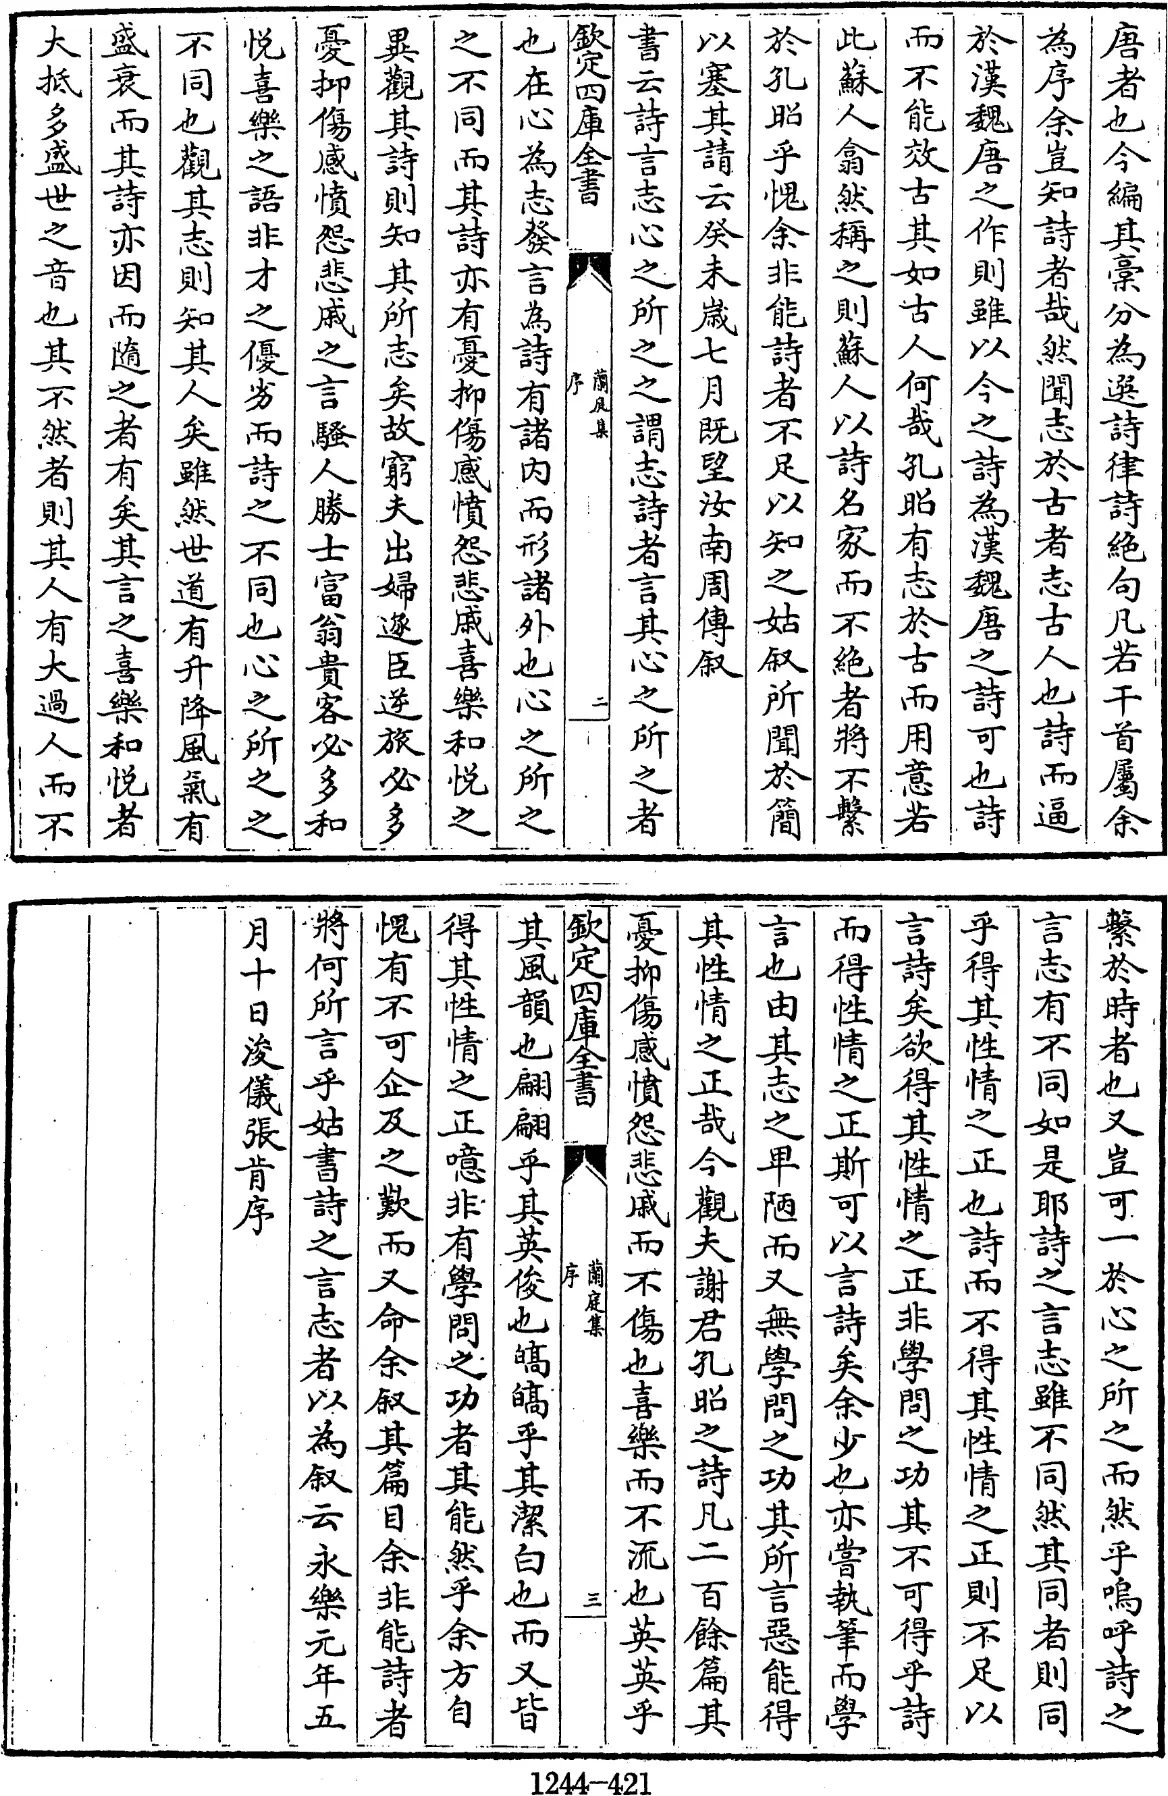 唐者也今編其稾分為選詩律詩絶句凡若干首屬余
為序余豈知詩者哉然聞志於古者志古人也詩而逼
於漢魏唐之作則雖以今之詩為漢魏唐之詩可也詩
而不能效古其如古人何哉孔昭有志於古而用意若
此蘇人翕然稱之則蘇人以詩名家而不絶者將不繫
於孔昭乎愧余非能詩者不足以知之姑叙所聞於簡
以塞其請云癸未歲七月既望汝南周傳叙
書云詩言志心之所之之謂志詩者言其心之所之者
欽定四庫全書
蘭庭集
序
二
也在心為志發言為詩有諸内而形諸外也心之所之
之不同而其詩亦有憂抑傷感憤怨悲戚喜樂和悦之
異觀其詩則知其所志矣故窮夫出婦逐臣逆旅必多
憂抑傷感憤怨悲戚之言騷人勝士富翁貴客必多和
悦喜樂之語非才之優劣而詩之不同也心之所之之
不同也觀其志則知其人矣雖然世道有升降風氣有
盛衰而其詩亦因而隨之者有矣其言之喜樂和悦者
大抵多盛世之音也其不然者則其人有大過人而不
繫於時者也又豈可一於心之所之而然乎嗚呼詩之
言志有不同如是耶詩之言志雖不同然其同者則同
乎得其性情之正也詩而不得其性情之正則不足以
言詩矣欲得其性情之正非學問之功其不可得乎詩
而得性情之正斯可以言詩矣余少也亦嘗執筆而學
言也由其志之卑陋而又無學問之功其所言惡能得
其性情之正哉今觀夫謝君孔昭之詩凡二百餘篇其
憂抑傷感憤怨悲戚而不傷也喜樂而不流也英英乎
欽定四庫全書
蘭庭集
序
三
其風韻也翩翩乎其英俊也皜皜乎其潔白也而又皆
得其性情之正噫非有學問之功者其能然乎余方自
愧有不可企及之歎而又命余叙其篇目余非能詩者
將何所言乎姑書詩之言志者以為叙云永樂元年五
月十日浚儀張肯序
1244-421